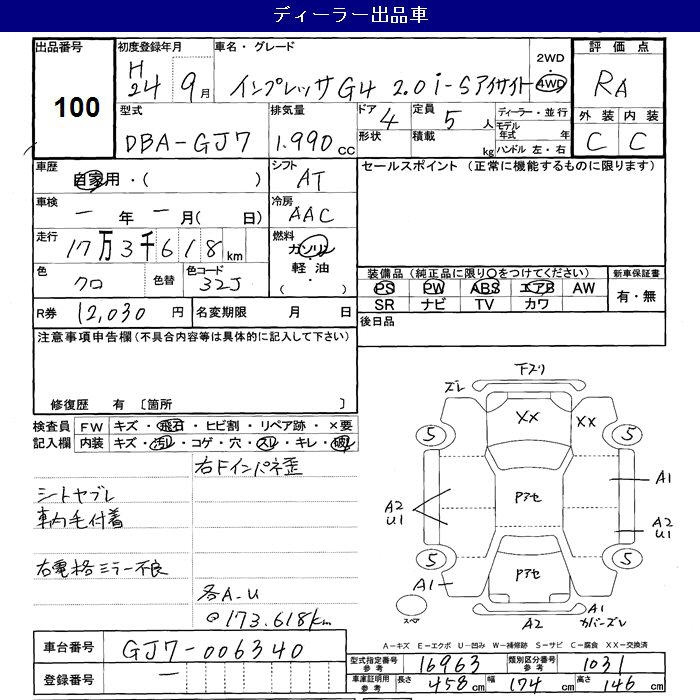 ディーラー出品車
出品番号 100
初度登録年月 H24 9月
車名・グレード インプレッサG4 2.0i-Sアイサイト 2WD・4WD
評価点 RA
外装 内装
C C
型式 DBA-GJ7
排気量 1.990cc
ドア 4 形状
定員 5人 積載 kg
ディーラー・並行
モデル年式 年
ハンドル 左・右
車歴 自家用・( )
シフト AT
セールスポイント (正常に機能するものに限ります)
車検 ー年ー月( 日)
冷房 AAC
走行 17万3千618km
燃料 ガソリン・軽油 ( ・ )
色 クロ 色替 色コード 32J
装備品(純正品に限り○をつけてください) 新車保証書
PS PW ABS エアB AW 有・無
SR ナビ TV カワ
R券 12,030円 名変期限 月 日
後日品
注意事項申告欄(不具合内容等は具体的に記入して下さい)
修復歴 有 〔箇所 〕
検査員 FW キズ・飛石・ヒビ割・リペア跡・×要
記入欄 内装 キズ・汚レ・コゲ・穴・スレ・キレ・破レ
右Fインパネ歪
シートヤブレ
車内毛付着
右電格ミラー不良
各A-U
@173.618km
下スリ
ズレ
XX XX
5 5
A1
Pアセ
A2
U1
A2
U1
5 5
Pアセ
A1
スペア
A2
A1
カバーズレ
A-キズ E-エクボ U-凹み W-補修跡 S-サビ C-腐食 XX-交換済
車台番号 GJ7-006340
登録番号 ー
型式指定番号 参考 16963 類別区分番号 参考 1031
車庫証明用 参考 長さ 458cm 幅 174cm 高さ 146cm